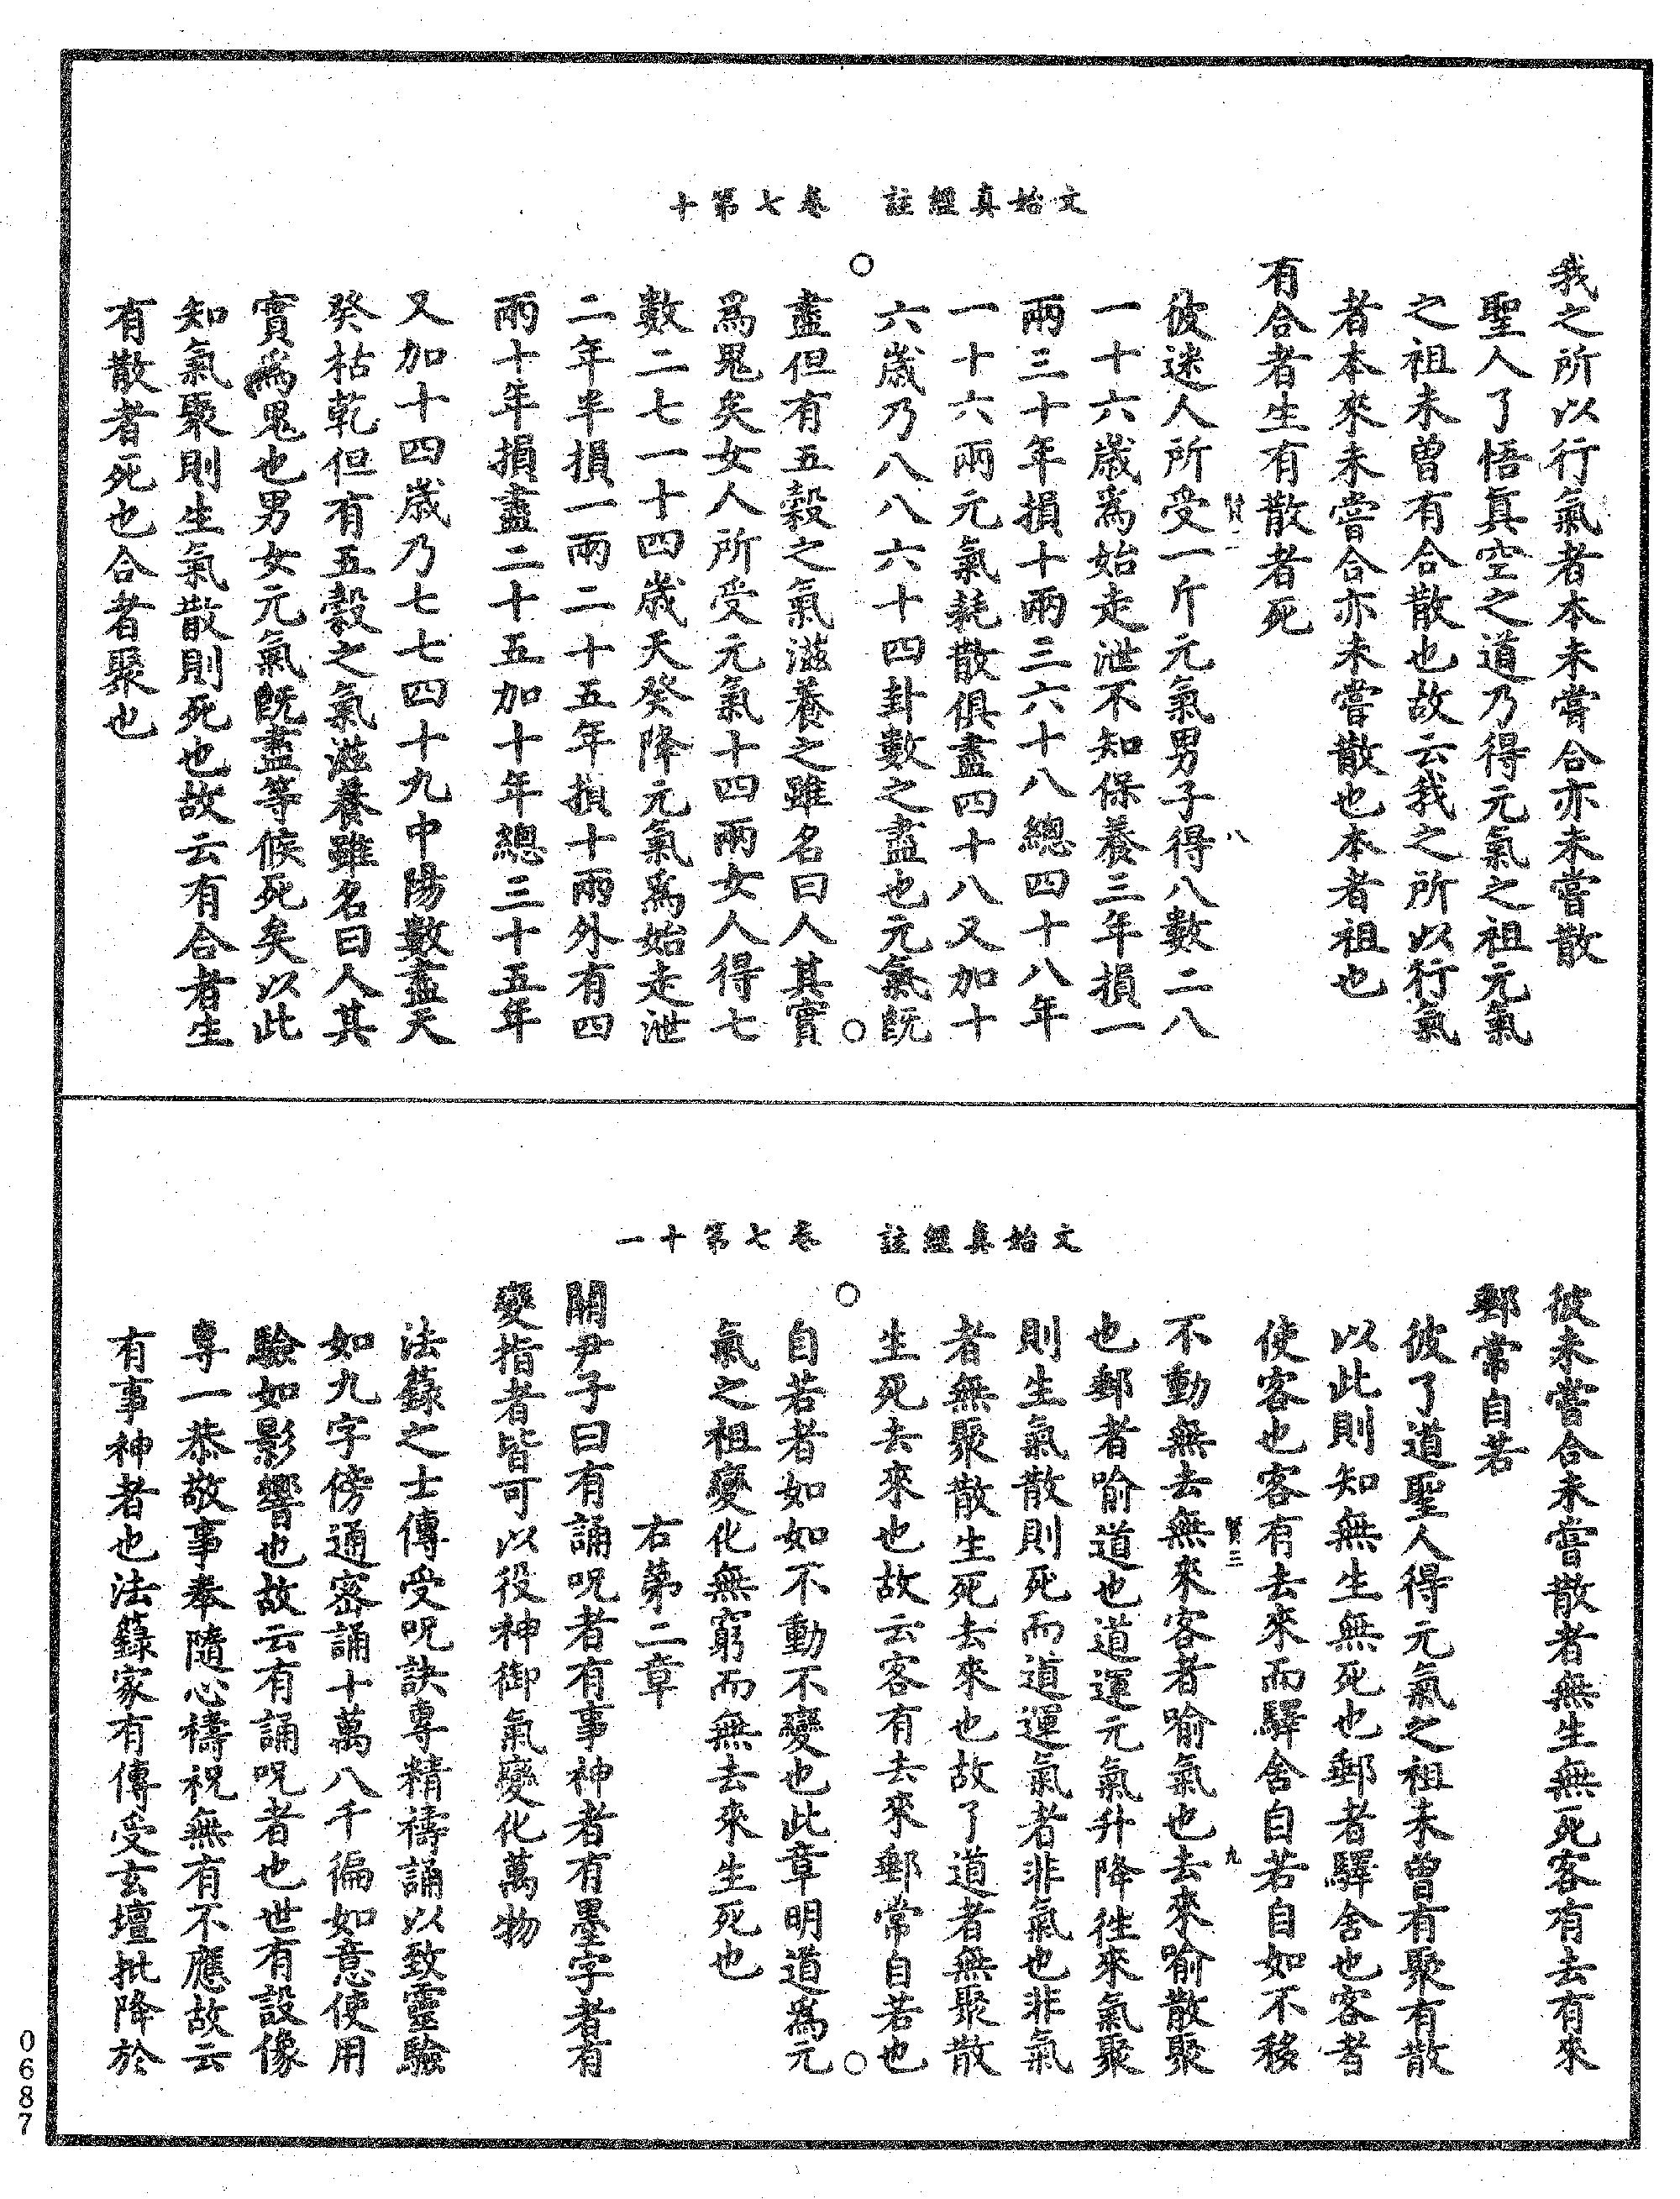 文始真經註　卷七第十
我之所以行氣者本未嘗合亦未嘗散
聖人了悟真空之道乃得元氣之祖元氣
之祖未曾有合散也故云我之所以行氣
者本來未嘗合亦未嘗散也本者祖也
有合者生有散者死
八
彼迷人所受一斤元氣男子得八數二八
一十六歲爲始走泄不知保養三年損一
兩三十年損十兩三六十八總四十八年
一十六兩元氣耗散俱盡四十八又加十
六歲乃八八六十四卦數之盡也元氣旣
盡但有五穀之氣滋養之雖名曰人其實
爲鬼矣女人所受元氣十四兩女人得七
數二七一十四歲天癸降元氣爲始走泄
二年半損一兩二十五年損十兩外有四
兩十年損盡二十五加十年總三十五年
又加十四歲乃七七四十九中陽數盡天
癸枯乾但有五穀之氣滋養雖名曰人其
實爲鬼也男女元氣旣盡等候死矣以此
知氣聚則生氣散則死也故云有合者生
有散者死也合者聚也
文始真經註　卷七第十一
彼未嘗合未嘗散者無生無死客有去有來
郵常自若
彼了道聖人得元氣之祖未曾有聚有散
以此則知無生無死也郵者驛舍也客者
使客也客有去來而驛舍自若自如不移
九
不動無去無來客者喻氣也去來喻散聚
也郵者喻道也道運元氣升降徃來氣聚
則生氣散則死而道運氣者非氣也非氣
者無聚散生死去來也故了道者無聚散
生死去來也故云客有去來郵常自若也
自若者如如不動不變也此章明道爲元
氣之祖變化無窮而無去來生死也
右第二章
關尹子曰有誦呪者有事神者有墨字者有
變指者皆可以役神御氣變化萬物
法籙之士傳受呪訣專精禱誦以致靈驗
如九字傍通密誦十萬八千徧如意使用
驗如影響也故云有誦呪者也世有設像
専一恭敬事奉隨心禱祝無有不應故云
有事神者也法籙家有傳受玄壇批降於
0687